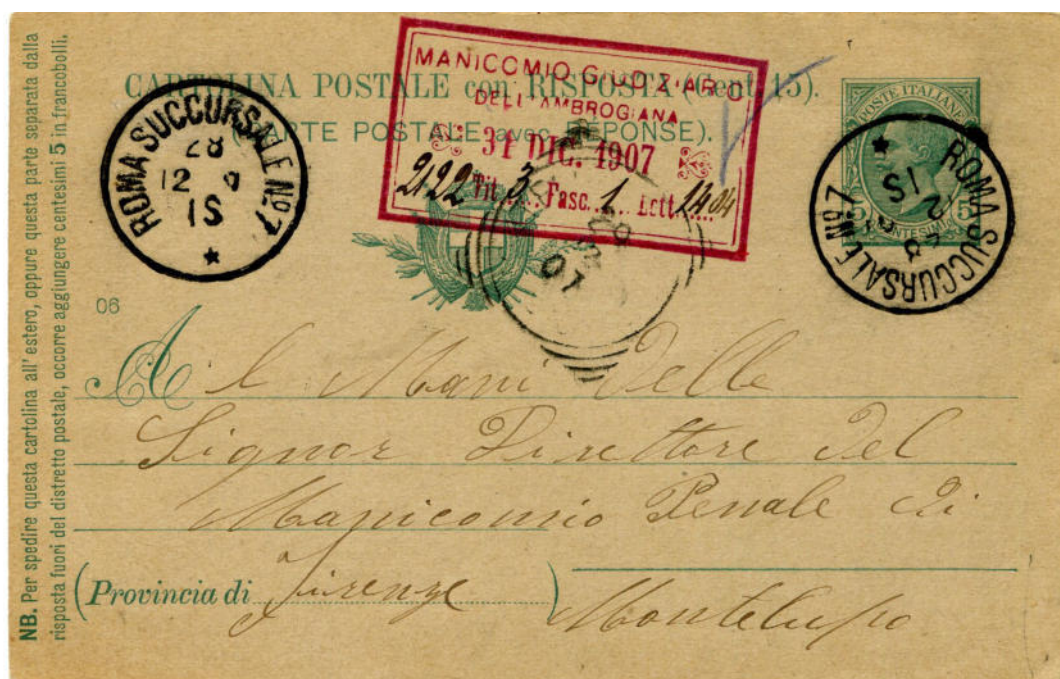 NB. Per spedire questa cartolina all' estero, oppure questa parte separata dalla
risposta fuori del distretto postale, occorre aggiungere centesimi 5 in francobolli.
CARTOLINA POSTALE con RISPOSTA (Cent. 15).
(CARTE POSTALE avec RÉPONSE).
MANICOMIO GIUDIZIARIO
DELL'AMBROGIANA
31 DIC. 1907
2122 Tit. 3. Fasc. 1 Lett.
ROMA SUCCURSALE Nº 7
28
12
15
POSTE ITALIANE
5 5
CENTESIMI
ROMA SUCCURSALE Nº 7
12
15
07
06
A l Mani Delle
Signor Direttore Del
Manicomio Penale Di
(Provincia di Firenze)
Montelupo